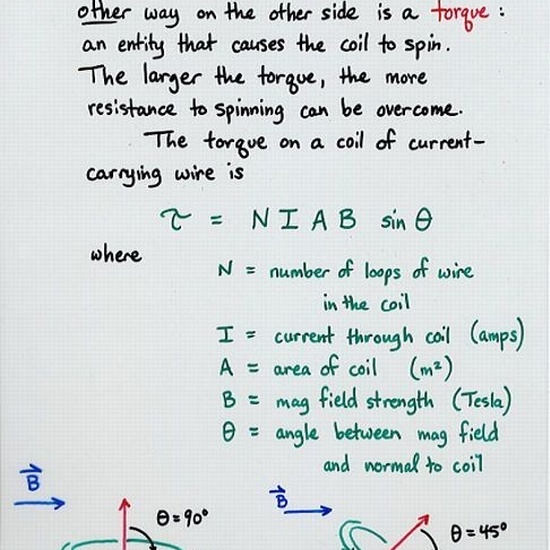 other way on the other side is a torque:
an entity that causes the coil to spin.
The larger the torque, the more
resistance to spinning can be overcome.
The torque on a coil of current-
carrying wire is
τ = N I A B sin θ
where
N = number of loops of wire
in the coil
I = current through coil (amps)
A = area of coil (m²)
B = mag field strength (Tesla)
θ = angle between mag field
and normal to coil
B
B
θ = 90°
θ = 45°